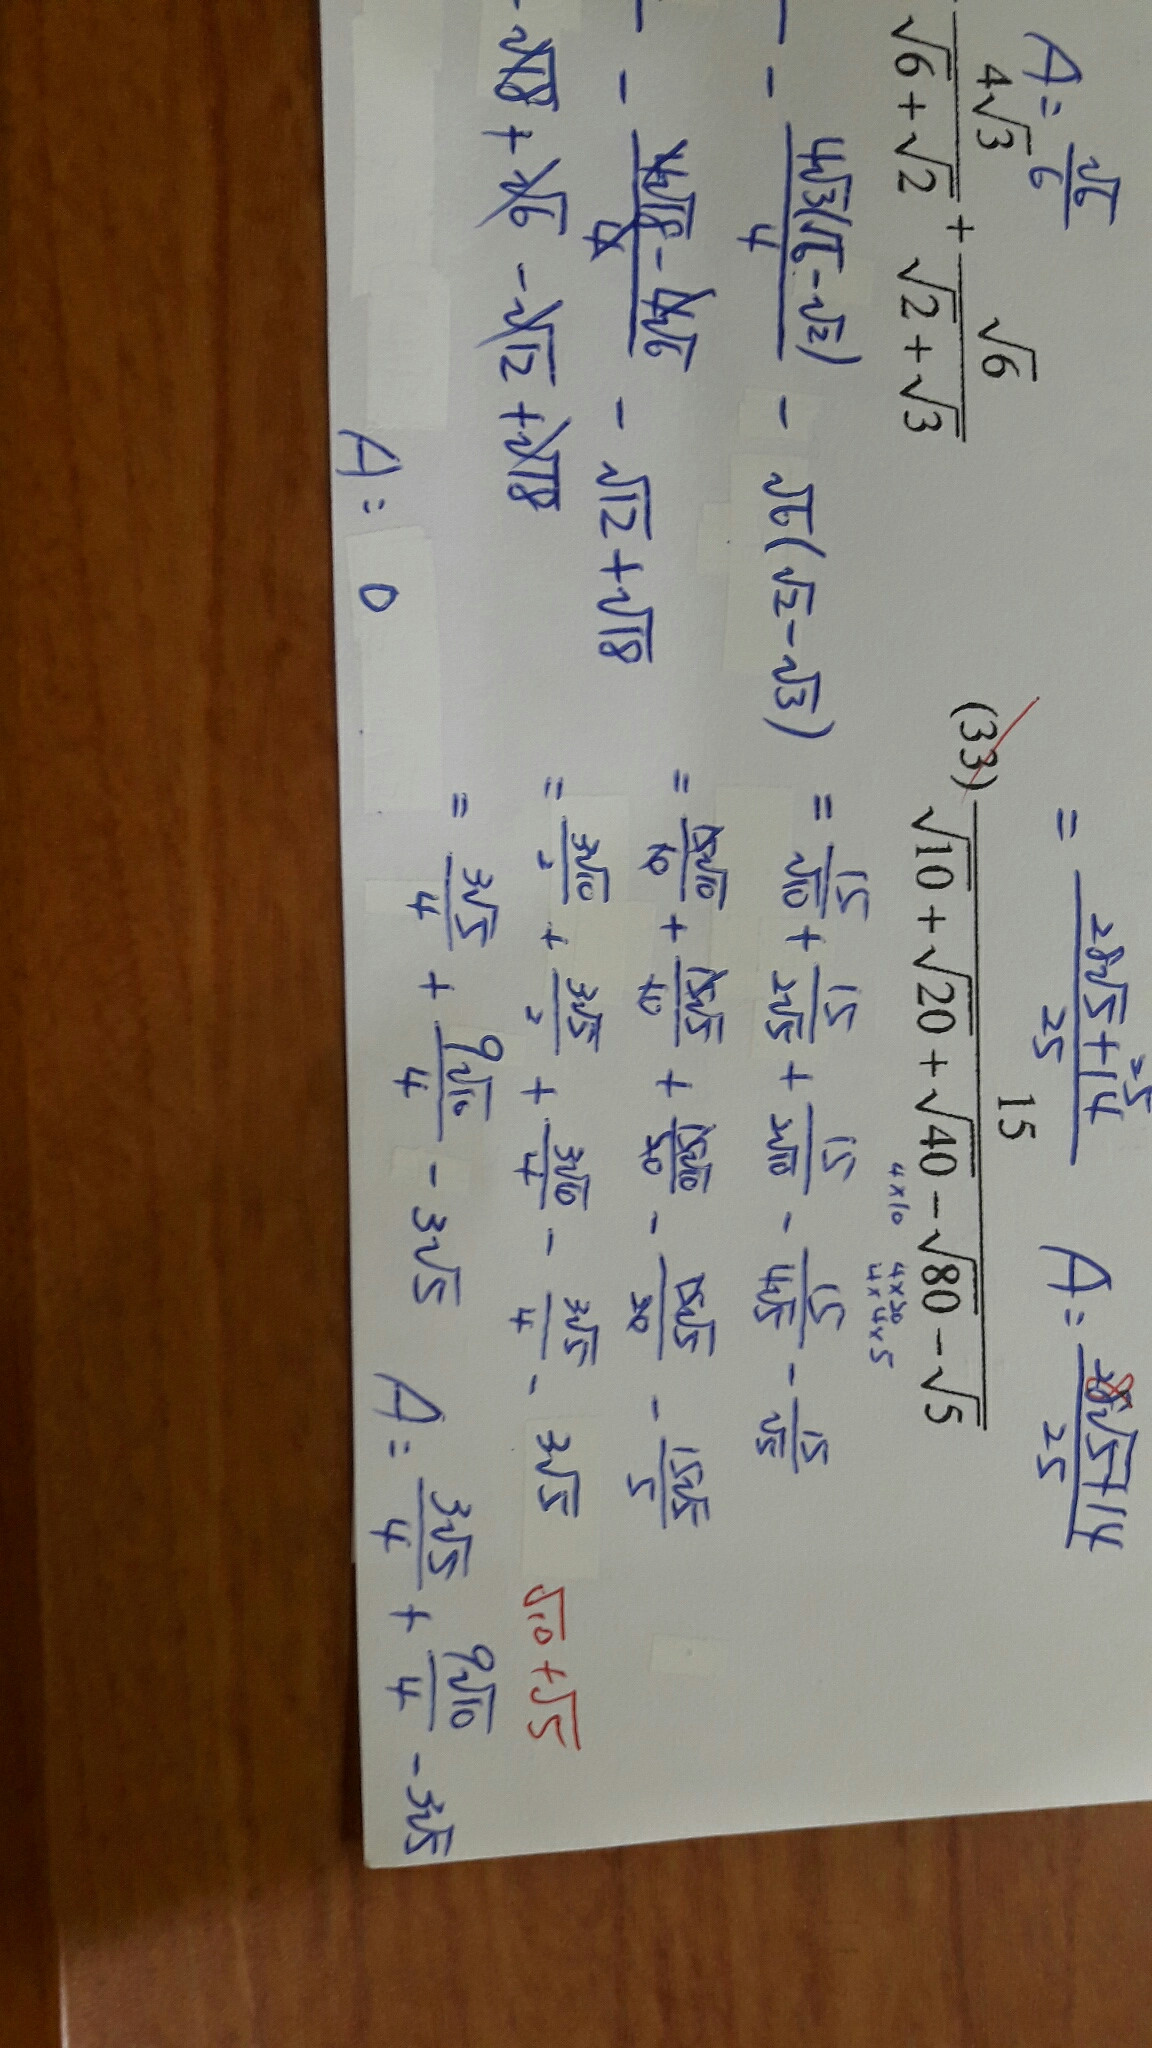 A = √6/6
4√3/(√6+√2) + √6/(√2+√3)
- 4√3(√6-√2)/4 - √6(√2-√3)
- (4√18-4√6)/4 - √12+√18
- √18+√6 - √12+√18
A = 0
= (28√5+14)/25
25
A = 28√5+14/25
8
(33) 15/(√10+√20+√40-√80-√5)
4×10 4×20
4×4×5
= 15/√10 + 15/2√5 + 15/2√10 - 15/4√5 - 15/√5
= 15√10/10 + 15√5/10 + 15√10/20 - 15√5/20 - 15√5/5
= 3√10/2 + 3√5/2 + 3√10/4 - 3√5/4 - 3√5
√10+√5
= 3√5/4 + 9√10/4 - 3√5
A = 3√5/4 + 9√10/4 - 3√5